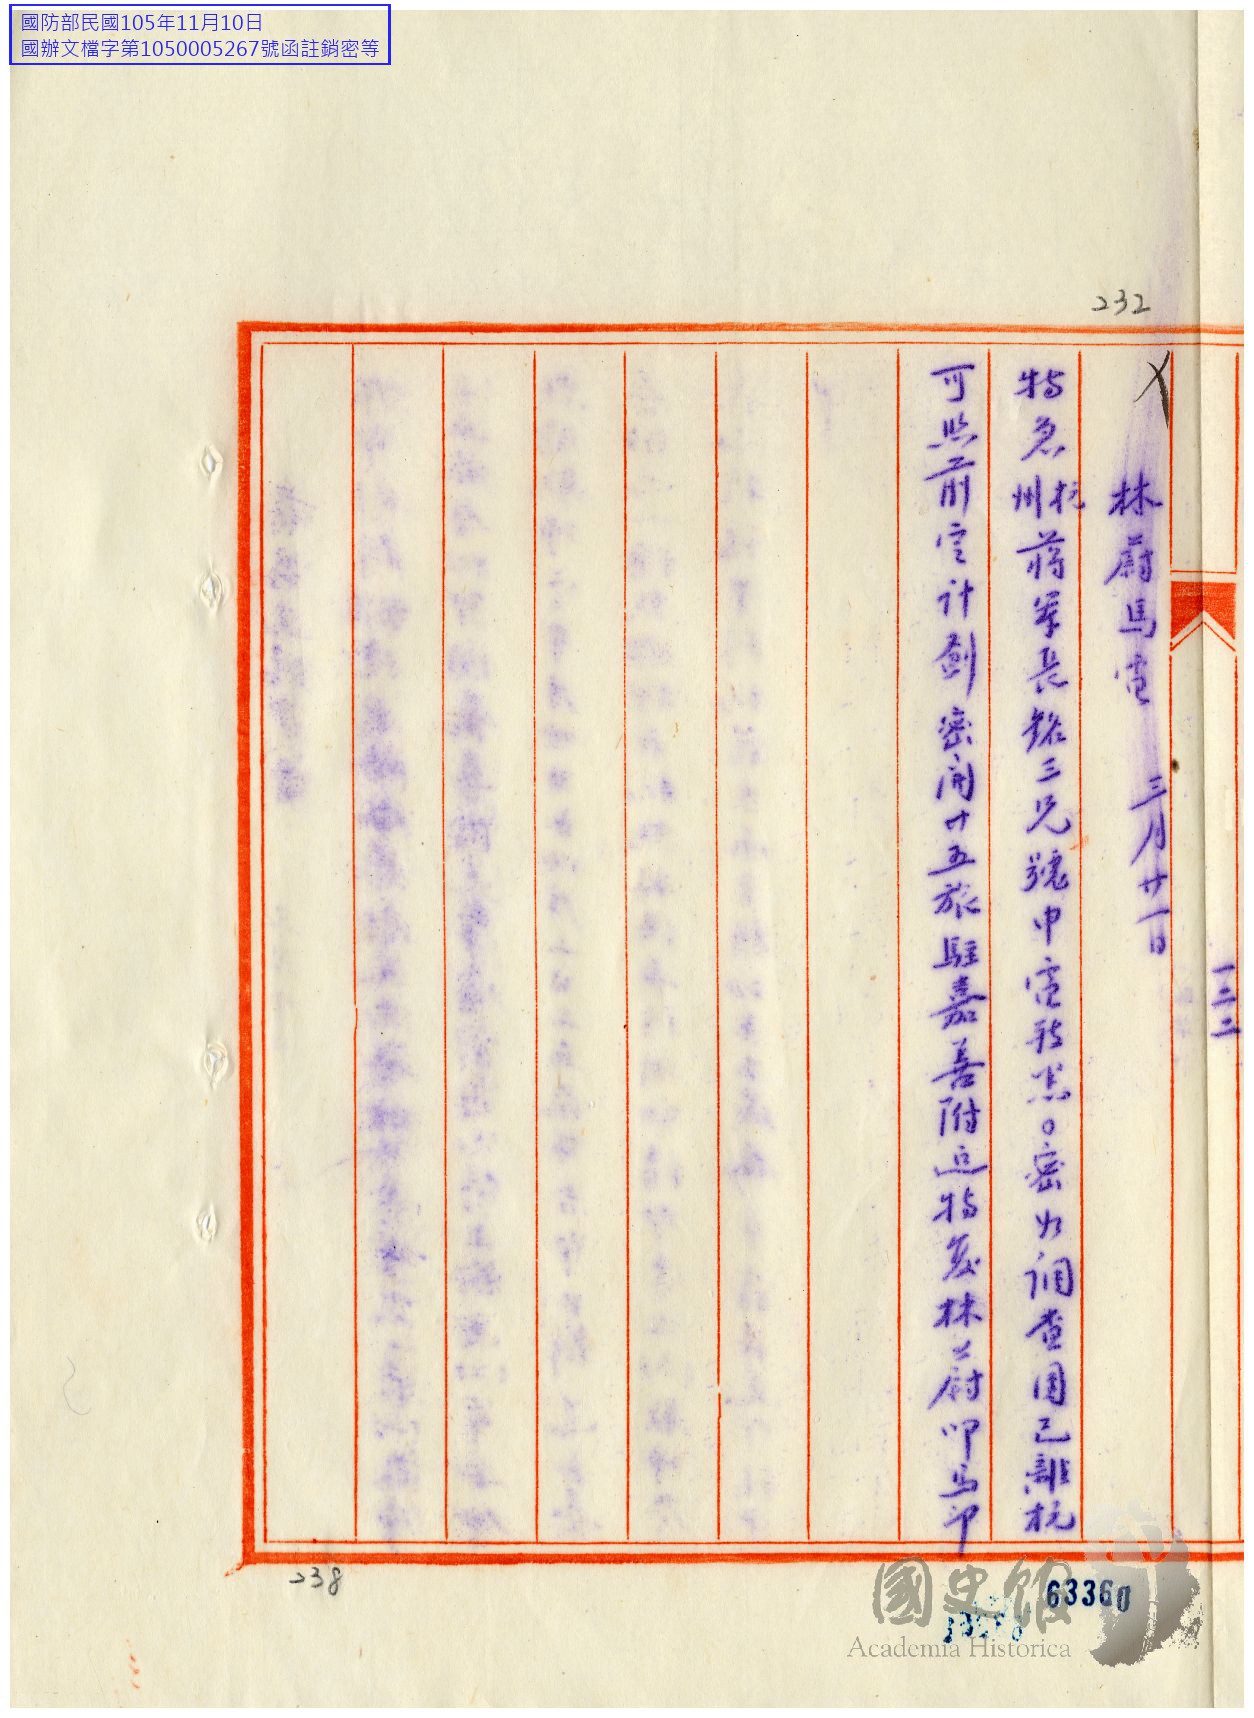 國防部民國105年11月10日
國辦文檔字第1050005267號函註銷密等
232
一三二
林蔚馬電 三月廿一日
特急杭州蔣軍長銘三兄號申電敬悉。密如調查團已離杭
可照前定計劃密開廿五旅駐嘉善附近特复林蔚叩馬印
238
63360
國史館
Academia Historica